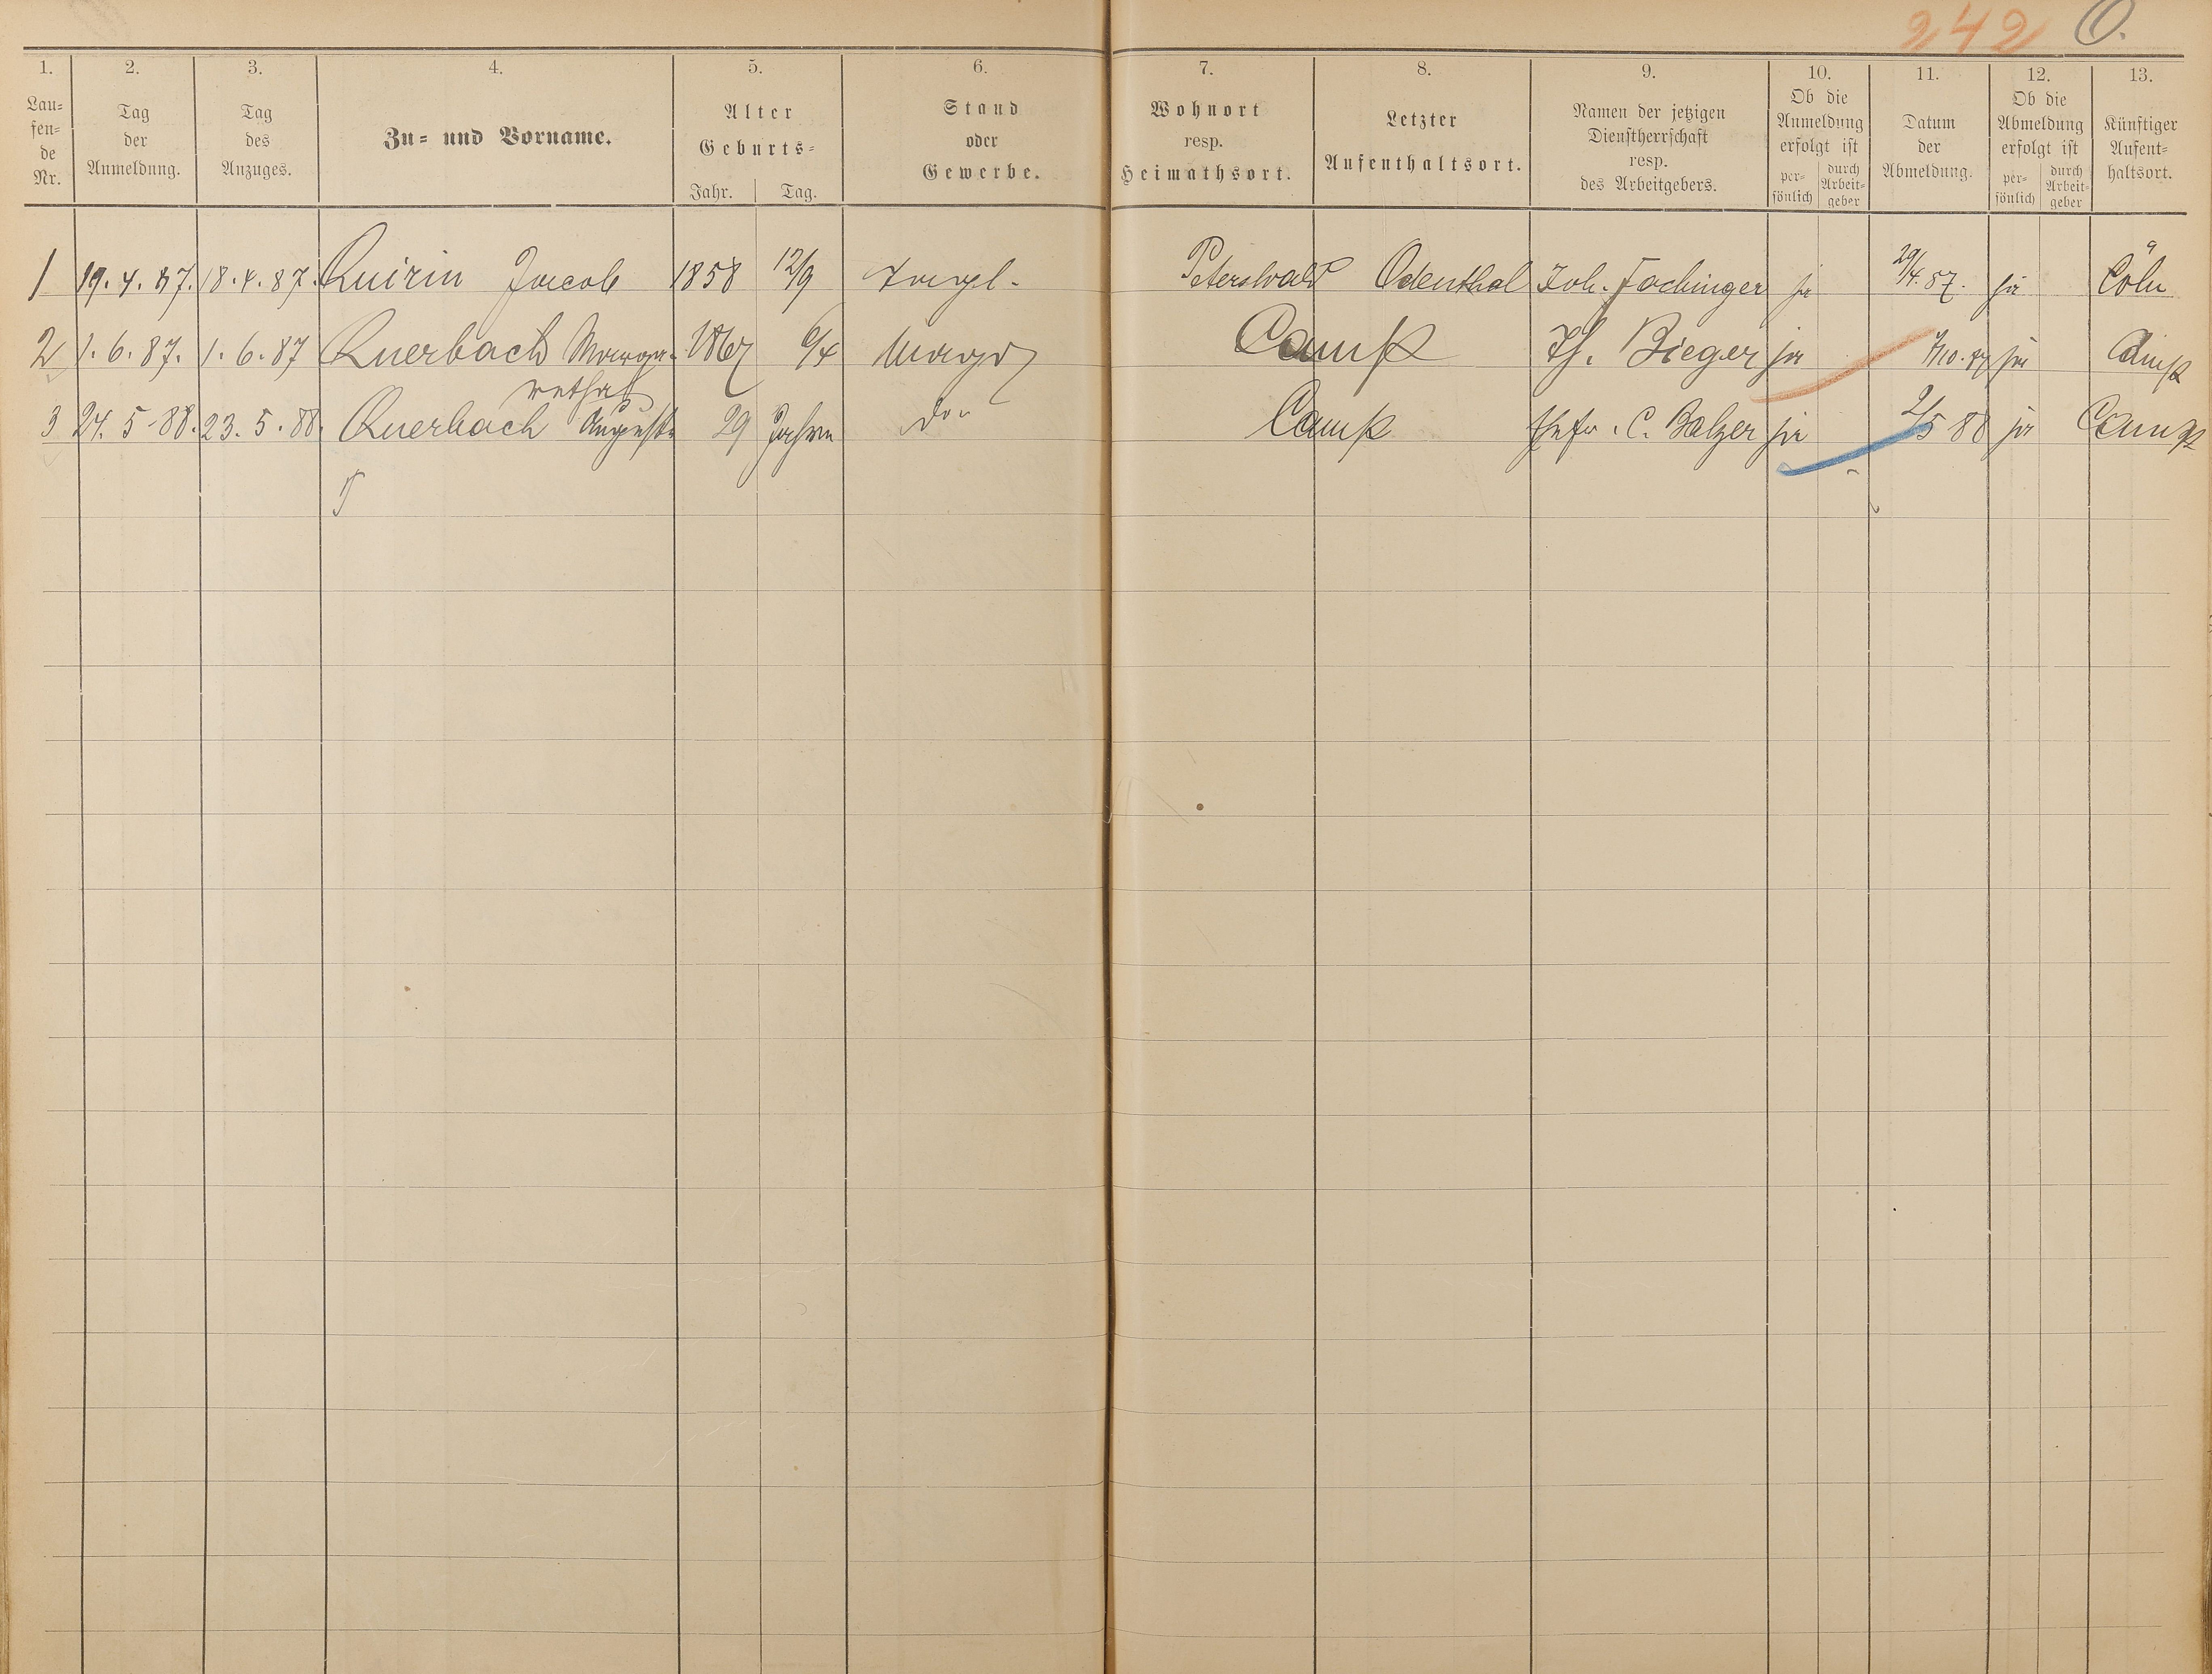 242 Q.
1. 2. 3. 4. 5. 6. 7. 8. 9. 10. 11. 12. 13.
Lau=
fen=
de
Nr.
Tag
der
Anmeldung.
Tag
des
Anzuges.
Zu= und Vorname.
Alter
Geburts=
Jahr. Tag.
Stand
oder
Gewerbe.
Wohnort
resp.
Heimathsort.
Letzter
Aufenthaltsort.
Namen der jetzigen
Dienstherrschaft
resp.
des Arbeitgebers.
Ob die
Anmeldung
erfolgt ist
per=
sönlich
durch
Arbeit=
geber
Datum
der
Abmeldung.
Ob die
Abmeldung
erfolgt ist
per=
sönlich
durch
Arbeit=
geber
Künftiger
Aufent=
haltsort.
1 19.4.87. 18.4.87. Quirin Jacob 1858 12/9 Peterswald Odenthal Joh. Fachinger ja 29/4.87. ja Cöln
2 1.6.87. 1.6.87 Querbach Marga= 1867 6/4 Magd Camp Th. Bieger ja ja Camp
retha
3 24.5.88. 23.5.88. Querbach Auguste 29 Jahre do Camp Ehefr. C. Balzer ja 2/5 88 ja Camp